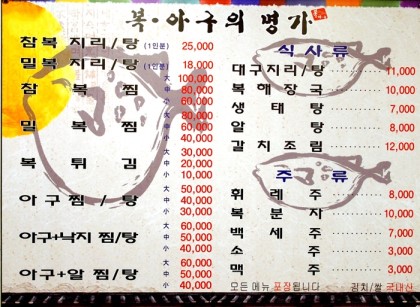 복·아구의 명가
참복 지리/탕 (1인분) 25,000
밀복 지리/탕 (1인분) 18,000
참 복 찜 大 100,000
中 80,000
小 60,000
밀 복 찜 大 80,000
中 60,000
小 40,000
복 튀 김 大
中 20,000
小 10,000
아구 찜 / 탕 大 50,000
中 40,000
小 30,000
아구+낙지 찜/탕 大 60,000
中 50,000
小 40,000
아구+알 찜/탕 大 60,000
中 50,000
小 40,000
식 사 류
대구지리/탕 11,000
복 해 장 국 10,000
생 태 탕 7,000
알 탕 8,000
갈 치 조 림 12,000
주 류
휘 레 주 8,000
복 분 자 10,000
백 세 주 7,000
소 주 3,000
맥 주 3,000
모든 메뉴 포장됩니다 김치/쌀 국내산